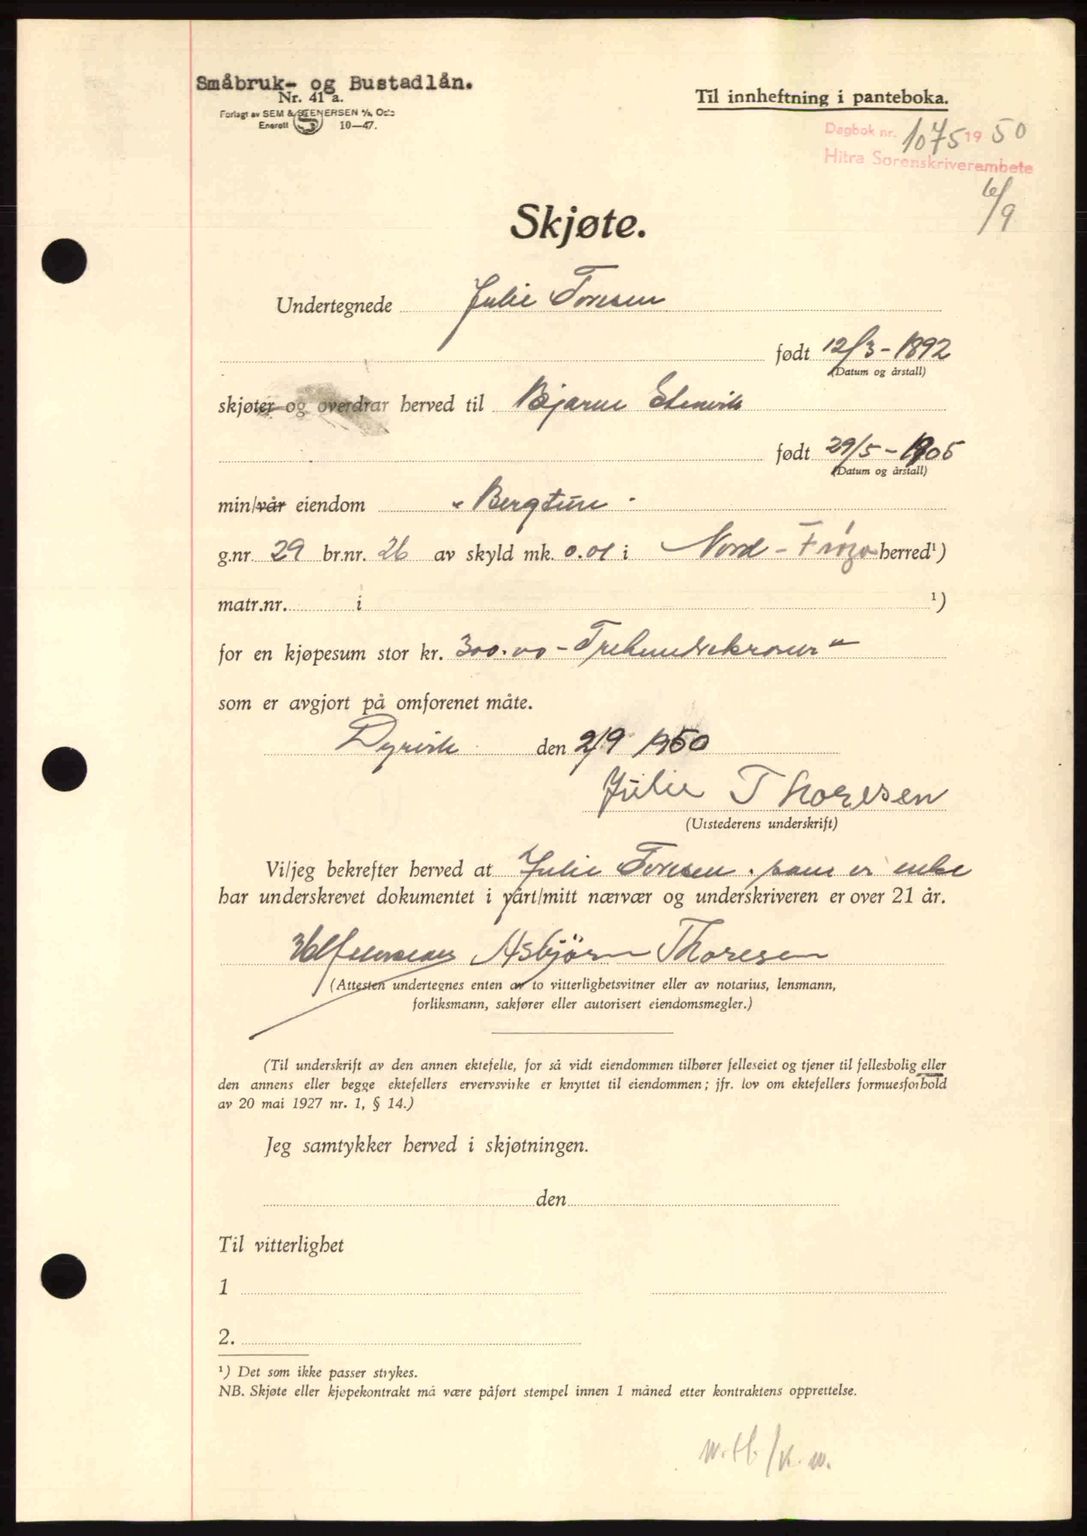 Småbruk- og Bustadlån.
Nr. 41 a.
Forlagt av SEM & STENERSEN A/S, Oslo
Enerett 10—47.
Til innheftning i panteboka.
Dagbok nr. 1075 1950
Hitra Sorenskriverembete
6/9
Skjøte.
Undertegnede Julie Toresen
født 12/3-1892
(Datum og årstall)
skjøter og overdrar herved til Bjarne Stenvik
født 29/5-1905
(Datum og årstall)
min/vår eiendom "Bergtun"
g.nr. 29 br.nr. 26 av skyld mk. 0.01 i Nord-Frøya herred¹)
matr.nr. i ¹)
for en kjøpesum stor kr. 300.00 - Trehundrekroner "
som er avgjort på omforenet måte.
Dyrvik den 2/9 1950
Julie Thoresen
(Utstederens underskrift)
Vi/jeg bekrefter herved at Julie Toresen. som er enke
har underskrevet dokumentet i vårt/mitt nærvær og underskriveren er over 21 år.
Asbjörn Thoresen
(Attesten undertegnes enten av to vitterlighetsvitner eller av notarius, lensmann,
forliksmann, sakfører eller autorisert eiendomsmegler.)
(Til underskrift av den annen ektefelle, for så vidt eiendommen tilhører felleseiet og tjener til fellesbolig eller
den annens eller begge ektefellers ervervsvirke er knyttet til eiendommen; jfr. lov om ektefellers formuesforhold
av 20 mai 1927 nr. 1, § 14.)
Jeg samtykker herved i skjøtningen.
den
Til vitterlighet
1
2.
¹) Det som ikke passer strykes.
NB. Skjøte eller kjøpekontrakt må være påført stempel innen 1 måned etter kontraktens opprettelse.